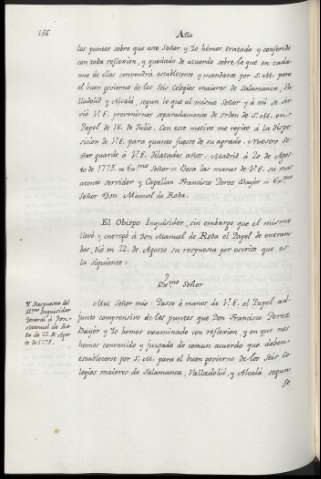 156
Año
los puntos sobre que este Señor y Yo hemos tratado y conferido
con toda reflexion, y quedado de acuerdo sobre lo que en cada
uno de ellos convendrá establecerse y mandarse por S.M. para
el buen govierno de los Seis Colegios maiores de Salamanca, Va-
lladolid y Alcalá, segun lo que al mismo Señor y á mi se sir-
vió V.E. prevenirnos separadamente de orden de S.M. en
Papel de 16. de Julio. Con este motivo me repito á la Dispo-
sicion de V.E. para quanto fuese de su agrado. Nuestro Se-
ñor guarde á V.E. dilatados años. Madrid á 20 de Agos-
to de 1775. = Exmo Señor = Besa las manos de V.E. su mas
atento servidor y Capellan Francisco Perez Bayer = Exmo
Señor Don Manuel de Roda.
El Obispo Inquisidor, sin embargo que el mismo
llevó y entregó á Don Manuel de Roda el Papel de enmien-
das, dió en 22. de Agosto su respuesta por escrito que es
la siguiente:
Exmo Señor
Respuesta del
Illmo Inquisidor
General á Don
Manuel de Ro-
da de 22. de Agos-
to de 1775.
Mui Señor mio: Paso á manos de V.E. el Papel ad-
junto comprensivo de los puntos que Don Francisco Perez
Bayer y Yo hemos examinado con reflexion, y en que nos
hemos convenido y juzgado de comun acuerdo que deben
establecerse por S.M. para el buen govierno de los Seis Co-
legios maiores de Salamanca, Valladolid, y Alcalá segun
se